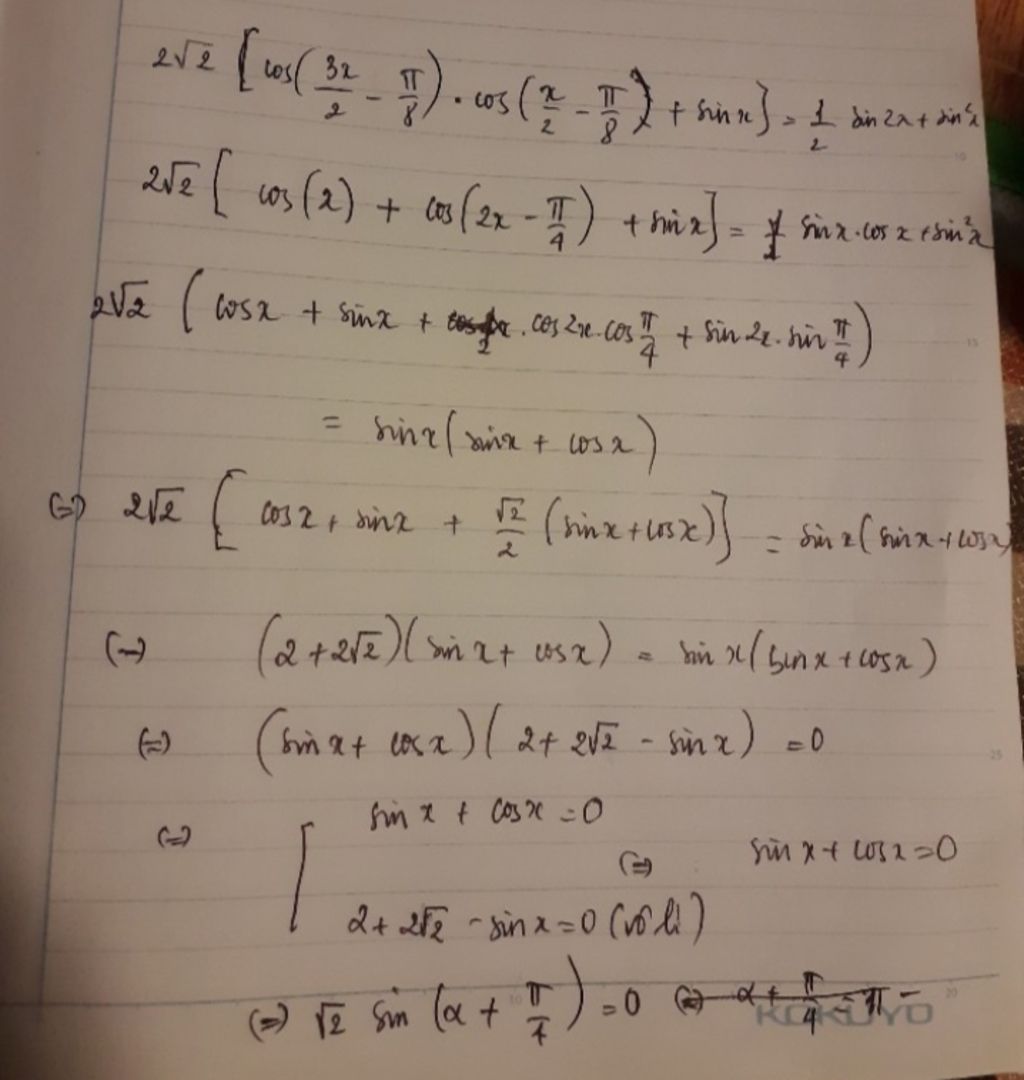 2√2 [cos(3x/2 - π/8) . cos(x/2 - π/8) + sin x] = 1/2 sin 2x + sin²x
2√2 [ cos(x) + cos(2x - π/4) + sin x] = sin x . cos x + sin²x
2√2 ( cos x + sin x + . cos 2x . cos π/4 + sin 2x . sin π/4 )
= sin x ( sin x + cos x )
(=) 2√2 [ cos x + sin x + √2/2 (sin x + cos x)] = sin x ( sin x + cos x)
(=) (2 + 2√2)( sin x + cos x) = sin x ( sin x + cos x)
(=) (sin x + cos x)( 2 + 2√2 - sin x) = 0
(=) [ sin x + cos x = 0
(=) sin x + cos x = 0
2 + 2√2 - sin x = 0 (vô lí)
(=) √2 sin (x + π/4) = 0 (=) x + π/4 = π -
KOKUYO